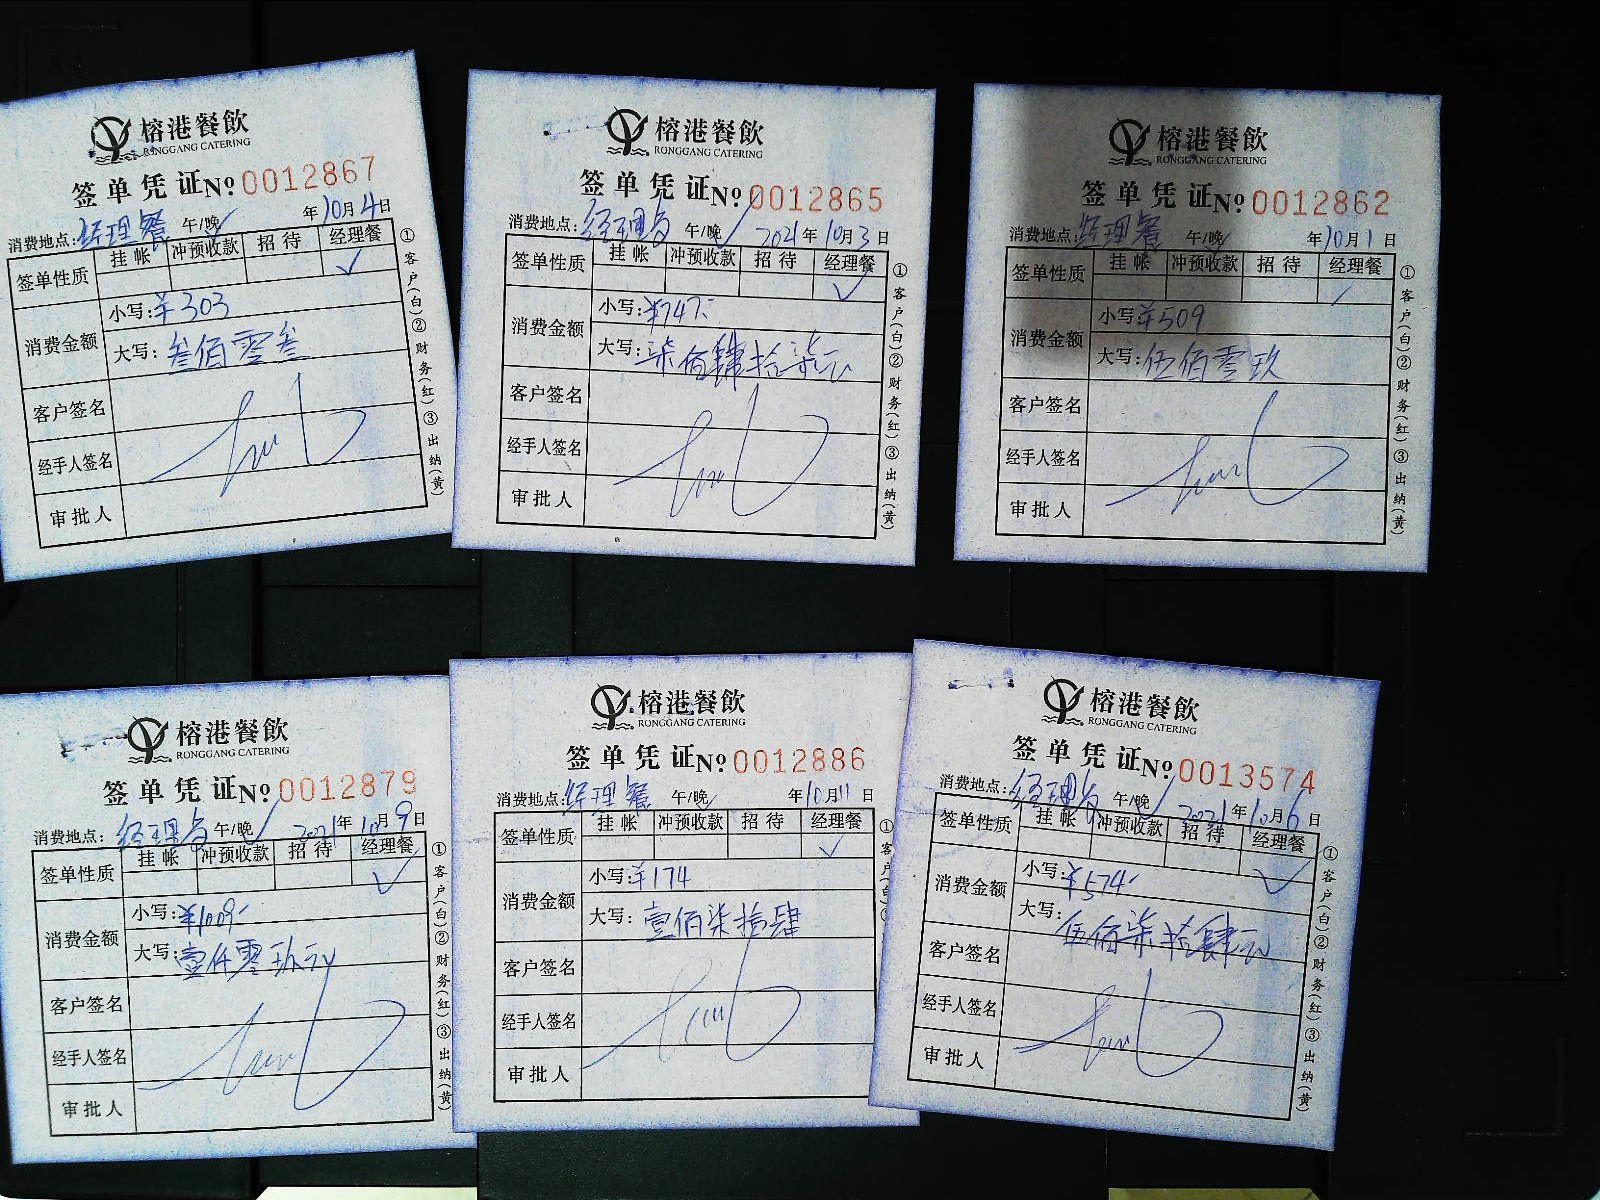 榕港餐飲
RONGGANG CATERING
签单凭证№0012867
消费地点:经理餐 午/晚✓ 年10月4日
签单性质 挂帐 冲预收款 招待 经理餐
✓
消费金额 小写:¥303
大写:叁佰零叁
客户签名
经手人签名
审批人
①客户(白)②财务(红)③出纳(黄)
榕港餐飲
RONGGANG CATERING
签单凭证№0012865
消费地点:经理房 午/晚✓ 2021年10月3日
签单性质 挂帐 冲预收款 招待 经理餐
✓
消费金额 小写:¥747.-
大写:柒佰肆拾柒元
客户签名
经手人签名
审批人
①客户(白)②财务(红)③出纳(黄)
榕港餐飲
RONGGANG CATERING
签单凭证№0012862
消费地点:经理餐 午/晚✓ 年10月1日
签单性质 挂帐 冲预收款 招待 经理餐
✓
消费金额 小写:¥509
大写:伍佰零玖
客户签名
经手人签名
审批人
①客户(白)②财务(红)③出纳(黄)
榕港餐飲
RONGGANG CATERING
签单凭证№0012879
消费地点:经理房 午/晚✓ 2021年10月9日
签单性质 挂帐 冲预收款 招待 经理餐
✓
消费金额 小写:¥1009.-
大写:壹仟零玖元
客户签名
经手人签名
审批人
①客户(白)②财务(红)③出纳(黄)
榕港餐飲
RONGGANG CATERING
签单凭证№0012886
消费地点:经理餐 午/晚✓ 年10月11日
签单性质 挂帐 冲预收款 招待 经理餐
✓
消费金额 小写:¥174
大写:壹佰柒拾肆
客户签名
经手人签名
审批人
①客户(白)
榕港餐飲
RONGGANG CATERING
签单凭证№0013574
消费地点:经理房 午/晚✓ 2021年10月6日
签单性质 挂帐 冲预收款 招待 经理餐
✓
消费金额 小写:¥574.-
大写:伍佰柒拾肆元
客户签名
经手人签名
审批人
①客户(白)②财务(红)③出纳(黄)